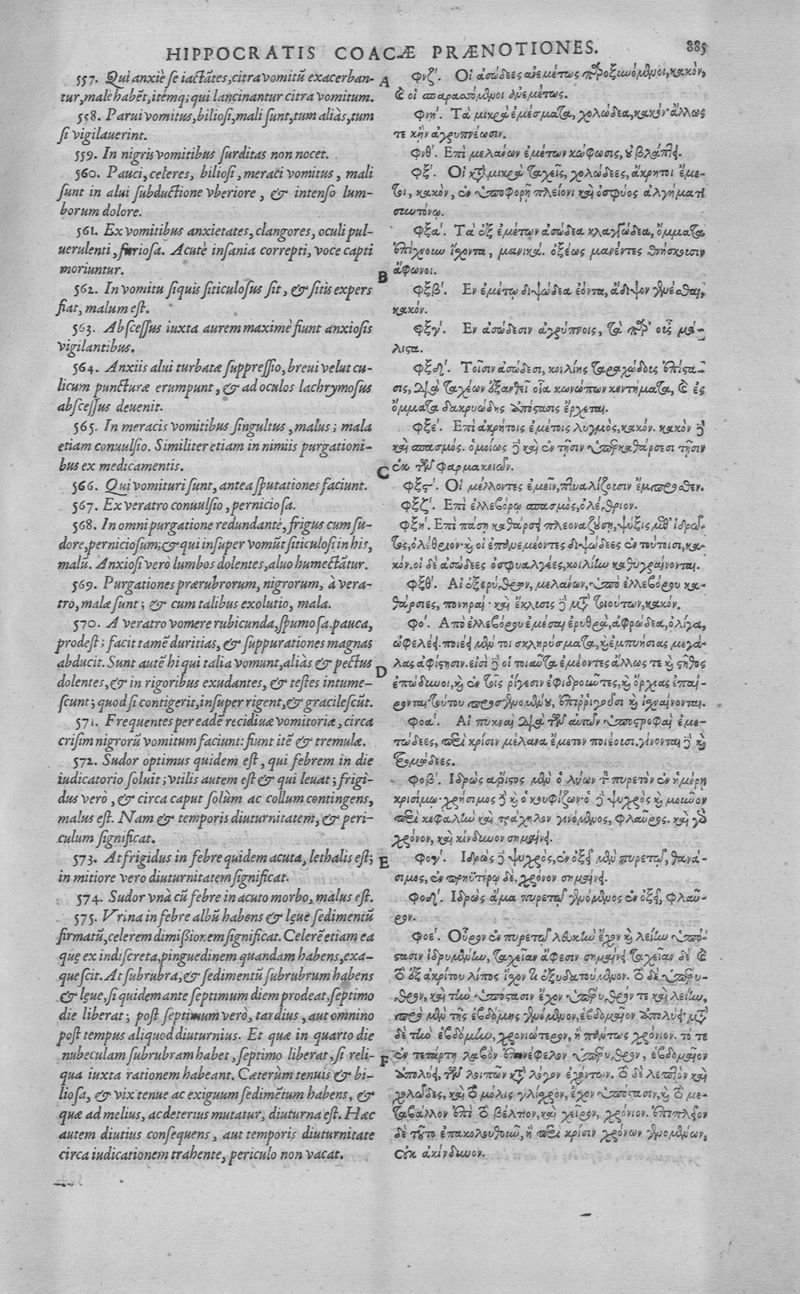 HIPPOCRATIS COACÆ PRÆNOTIONES. 885
557. Qui anxiè se iactātes, citra vomitū exacerban-
tur, male habēt, itémq; qui lancinantur citra vomitum.
558. Parui vomitus, biliosi, mali sunt, tum aliàs, tum
si vigilauerint.
559. In nigris vomitibus surditas non nocet.
560. Pauci, celeres, biliosi, meraci vomitus, mali
sunt in alui subductione vberiore, & intenso lum-
borum dolore.
561. Ex vomitibus anxietates, clangores, oculi pul-
uerulenti, furiosa. Acutè insania correpti, voce capti
moriuntur.
562. In vomitu siquis siticulosus sit, & sitis expers
fiat, malum est.
563. Abscessus iuxta aurem maximè fiunt anxiosis
vigilantibus.
564. Anxiis alui turbatæ suppressio, breui velut cu-
licum puncturæ erumpunt, & ad oculos lachrymosus
abscessus deuenit.
565. In meracis vomitibus singultus, malus; mala
etiam conuulsio. Similiter etiam in nimiis purgationi-
bus ex medicamentis.
566. Qui vomituri sunt, antea sputationes faciunt.
567. Ex veratro conuulsio, perniciosa.
568. In omni purgatione redundante, frigus cum su-
dore, perniciosum; & qui insuper vomūt siticulosi in his,
malū. Anxiosi verò lumbos dolentes, aluo humectātur.
569. Purgationes prærubrorum, nigrorum, à vera-
tro, malæ sunt; & cum talibus exolutio, mala.
570. A veratro vomere rubicunda, spumosa, pauca,
prodest; facit tamē duritias, & suppurationes magnas
abducit. Sunt autē hi qui talia vomunt, aliàs & pectus
dolentes, & in rigoribus exudantes, & testes intume-
scunt; quod si contigerit, insuper rigent, & gracilescūt.
571. Frequentes per eadē recidiuæ vomitoriæ, circa
crisim nigrorū vomitum faciunt: fiunt itē & tremulæ.
572. Sudor optimus quidem est, qui febrem in die
iudicatorio soluit; vtilis autem est & qui leuat; frigi-
dus verò, & circa caput solùm ac collum contingens,
malus est. Nam & temporis diuturnitatem, & peri-
culum significat.
573. At frigidus in febre quidem acuta, lethalis est;
in mitiore vero diuturnitatem significat.
574. Sudor vnà cū febre in acuto morbo, malus est.
575. Vrina in febre albū habens & lęue sedimentū
firmatū, celerem dimissionem significat. Celerē etiam ea
quę ex indiscreta, pinguedinem quandam habens, exa-
quescit. At subrubra, & sedimentū subrubrum habens
& lęue, si quidem ante septimum diem prodeat, septimo
die liberat; post septimum verò, tardius, aut omnino
post tempus aliquod diuturnius. Et quæ in quarto die
nubeculam subrubram habet, septimo liberat, si reli-
qua iuxta rationem habeant. Cæterùm tenuis & bi-
liosa, & vix tenue ac exiguum sedimētum habens, &
quæ ad melius, ac deterius mutatur, diuturna est. Hæc
autem diutius consequens, aut temporis diuturnitate
circa iudicationem trahente, periculo non vacat.
A
B
C
D
E
F
φνζʹ. Οἱ ἀσώδεες ἀνεμέτως παροξυνόμενοι, κακόν,
καὶ οἱ σπαρασσόμενοι ἀνεμέτως.
φνηʹ. Τὰ μικρὰ ἐμέσματα, χολώδεα, κακόν· ἄλλως
τε κἢν ἀγρυπνέωσιν.
φνθʹ. Επὶ μελάνων ἐμέτων κώφωσις, οὐ βλάπτει.
φξʹ. Οἱ κατὰ μικρὰ ταχεῖς, χολώδεες, ἄκρητοι ἔμε-
τοι, κακόν, ἐν ὑποφορῇ πλείονι καὶ ὀσφύος ἀλγήματι
συντόνῳ.
φξαʹ. Τὰ ἐξ ἐμέτων ἀσώδεα κλαγγώδεα, ὄμματα
ἐπίχνουν ἴσχοντα, μανικά. ὀξέως μανέντες θνήσκουσιν
ἄφωνοι.
φξβʹ. Εν ἐμέτῳ διψώδεα ἐόντα, ἄδιψον γενέσθαι,
κακόν.
φξγʹ. Εν ἀσώδεσιν ἀγρύπνοις, τὰ παρ' οὖς μά-
λιστα.
φξδʹ. Τοῖσιν ἀσώδεσι, κοιλίης ταραχώδεος ἐπίστα-
σις, διὰ ταχέων ἐξανθεῖ οἷα κωνώπων κεντήματα, καὶ ἐς
ὄμματα δακρυώδης ἀπόστασις ἔρχεται.
φξεʹ. Επὶ ἀκρήτοις ἐμέτοις λυγμὸς, κακόν. κακὸν δὲ
καὶ σπασμός. ὁμοίως δὲ καὶ ἐν τῇσιν ὑπερκαθάρσεσι τῇσιν
ἐκ τῶν φαρμακειῶν.
φξςʹ. Οἱ μέλλοντες ἐμεῖν, πτυαλίζουσιν ἔμπροσθεν.
φξζʹ. Επὶ ἐλλεβόρῳ σπασμὸς, ὀλέθριον.
φξηʹ. Επὶ πάσῃ καθάρσει πλεοναζούσῃ, ψύξις μεθ' ἱδρῶ-
τος, ὀλέθριον· καὶ οἱ ἐπανεμέοντες διψώδεες ἐν τούτοισι, κα-
κόν. οἱ δὲ ἀσώδεες ὀσφυαλγέες, κοιλίην καθυγραίνονται.
φξθʹ. Αἱ ἐξερύθρων, μελάνων, ὑπὸ ἐλλεβόρου κα-
θάρσιες, πονηραί· καὶ ἔκλυσις δὲ μετὰ τοιούτων, κακόν.
φοʹ. Απὸ ἐλλεβόρου ἐμέσαι ἐρυθρὰ, ἀφρώδεα, ὀλίγα,
ὠφελέει. ποιέει μέν τοι σκληρύσματα, καὶ ἐμπυήσιας μεγά-
λας ἀφίστησιν. εἰσὶ δὲ οἱ τοιαῦτα ἐμέοντες ἄλλως τε καὶ στῆθος
ἐπώδυνοι, καὶ ἐν τοῖς ῥίγεσιν ἐφιδροῦντες, καὶ ὄρχιας ἐπαί-
ρονται· τούτου προσγενομένου, ἐπιρριγοῦσι καὶ ἰσχναίνονται.
φοαʹ. Αἱ πυκναὶ διὰ τῶν αὐτῶν ὑποστροφαὶ ἐμε-
τώδεες, περὶ κρίσιν μέλανα ἔμετον ποιέουσι. γίνονται δὲ καὶ
τρομώδεες.
φοβʹ. Ιδρὼς ἄριστος μὲν ὁ λύων τὸν πυρετὸν ἐν ἡμέρῃ
κρισίμῳ· χρήσιμος δὲ καὶ ὁ κουφίζων· ὁ δὲ ψυχρὸς καὶ μοῦνον
περὶ κεφαλὴν καὶ τράχηλον γινόμενος, φλαῦρος. καὶ γὰρ
χρόνον, καὶ κίνδυνον σημαίνει.
φογʹ. Ιδρὼς δὲ ψυχρὸς, ἐν ὀξεῖ μὲν πυρετῷ, θανά-
σιμος, ἐν πρηϋτέρῳ δὲ, χρόνον σημαίνει.
φοδʹ. Ιδρὼς ἅμα πυρετῷ γενόμενος ἐν ὀξεῖ, φλαῦ-
ρον.
φοεʹ. Οὖρον ἐν πυρετῷ λευκὴν ἔχον καὶ λείην ὑπό-
στασιν ἱδρυμένην, ταχεῖαν ἄφεσιν σημαίνει· ταχεῖαν δὲ καὶ
τὸ ἐξ ἀκρίτου λίπος ἴσχον τι ἐξυδατούμενον. τὸ δὲ ὑπέρυ-
θρον, καὶ τὴν ὑπόστασιν ἔχον ὑπέρυθρόν τε καὶ λείην,
πρὸ μὲν τῆς ἑβδόμης γενόμενον, ἑβδομαῖον ἀπολύει· μετὰ
δὲ τὴν ἑβδόμην, χρονιώτερον, ἢ πάντως χρόνιον. τό τε
ἐν τετάρτῃ λαβὸν ἐπινέφελον ὑπέρυθρον, ἑβδομαῖον
ἀπολύει, τῶν λοιπῶν κατὰ λόγον ἐχόντων. τὸ δὲ λεπτὸν καὶ
χολῶδες, καὶ τὸ μόλις γλίσχρον, ἔχον ὑπόστασιν, καὶ τὸ με-
ταβάλλον ἐπὶ τὸ βέλτιον, καὶ χεῖρον, χρόνιον. ἐπιπλέον
δὲ τοῦτο ἐπακολουθοῦν, ἢ περὶ κρίσιν χρόνων γενομένων,
οὐκ ἀκίνδυνον.